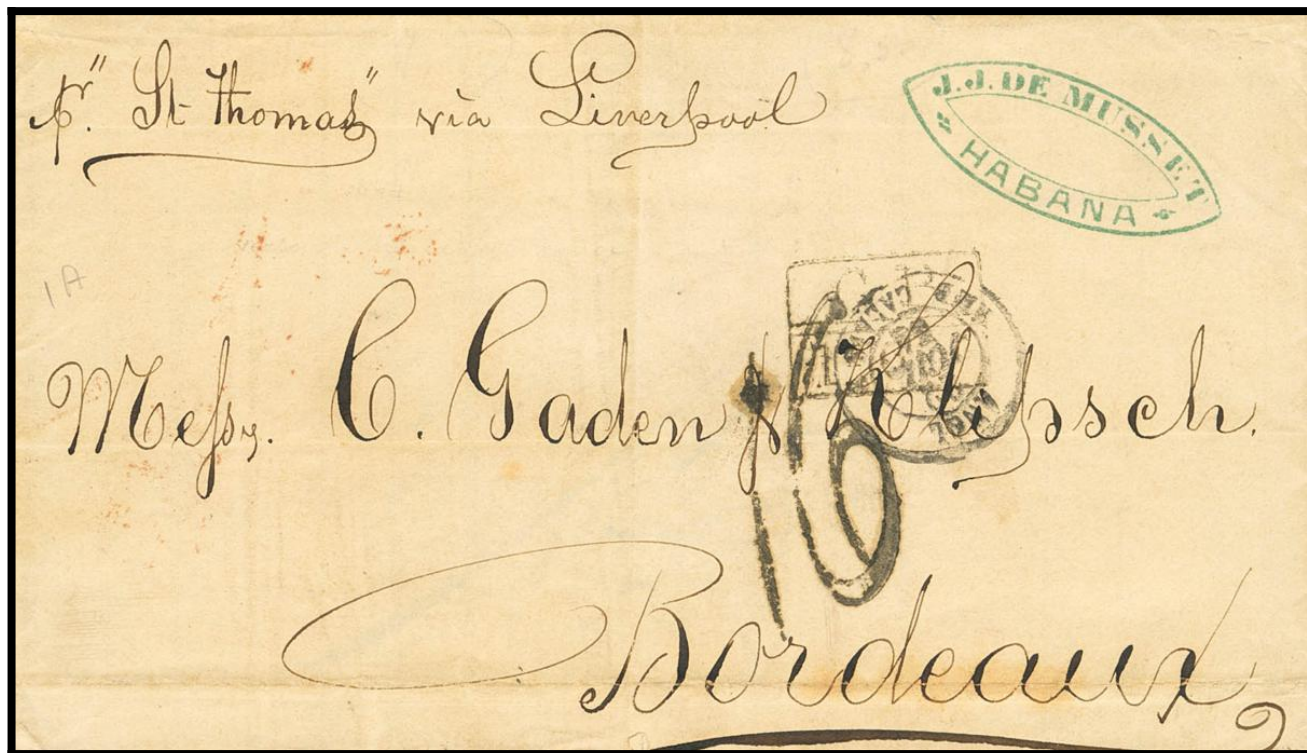 pr. "St Thomas" via Liverpool
J. J. DE MUSSET
HABANA
1A
Messrs. C. Gaden & Klipsch.
16
Bordeaux